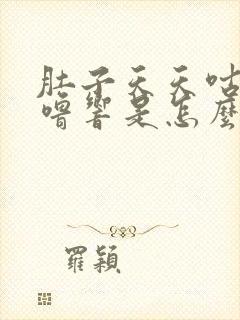 肚子天天咕
嚕響是怎麼
羅穎